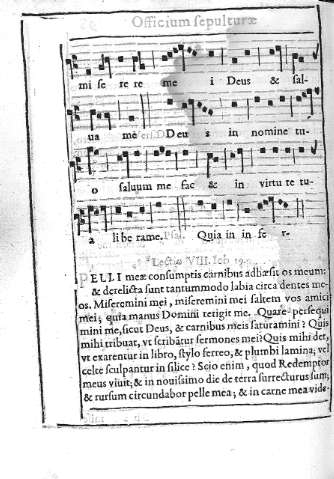 Officium sepulturæ
mi se re re me i Deus & sal-
ua me Deu s in nomine tú-
o saluum me fac & in virtu te tu-
a li be rame. Psal. Quia in in fe r-
Lectio VIII. Iob 19.
PELLI meæ consumptis carnibus adhæsit os meum:
& derelicta sunt tantummodo labia circa dentes me-
os. Miseremini mei, miseremini mei saltem vos amici
mei; quia manus Domini tetigit me. Quare persequi
mini me, sicut Deus, & carnibus meis saturamini? Quis
mihi tribuat, vt scribãtur sermones mei? Quis mihi det,
vt exarentur in libro, stylo ferreo, & plumbi lamina, vel
celte sculpantur in silice? Scio enim, quod Redemptor
meus viuit; & in nouissimo die de terra surrecturus sum;
& rursum circundabor pelle mea; & in carne mea vide-